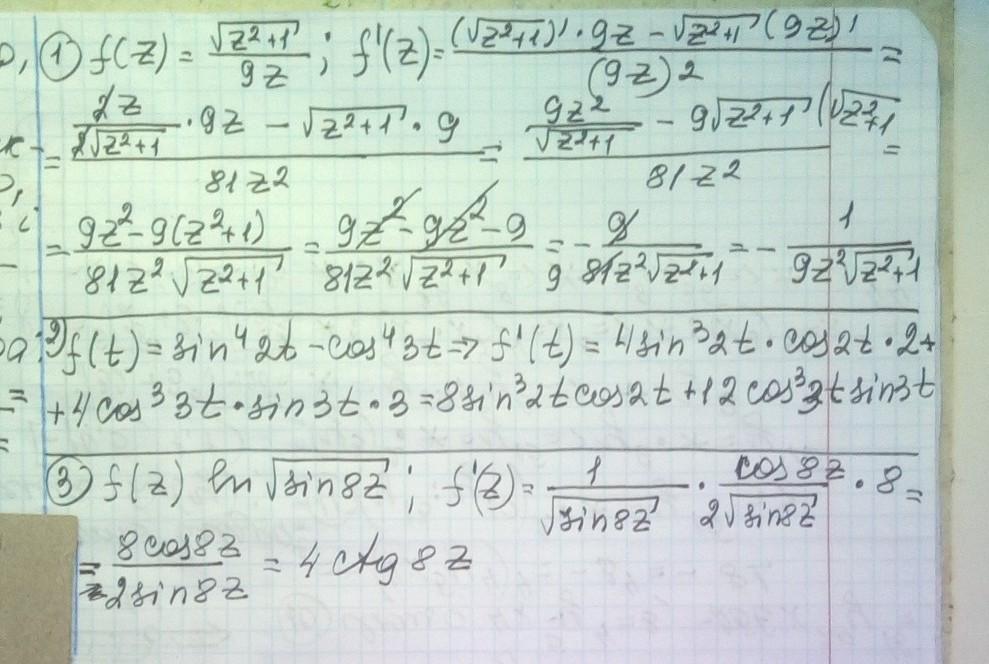 ① f(z) = √(z²+1) / 9z ; f'(z) = ((√(z²+1))' · 9z − √(z²+1) (9z)') / (9z)2 =
= (2z / 2√(z²+1) · 9z − √(z²+1) · 9) / 81z² = (9z² / √(z²+1) − 9√(z²+1) (√(z²+1) / 81z² =
= (9z² − 9(z²+1)) / (81z² √(z²+1)) = (9z² − 9z² − 9) / (81z² √(z²+1)) = − 9 / (9 81z² √(z²+1)) = − 1 / (9z² √(z²+1))
2) f(t) = sin⁴ 2t − cos⁴ 3t ⇒ f'(t) = 4 sin³ 2t · cos 2t · 2 +
+ 4 cos³ 3t · sin 3t · 3 = 8 sin³ 2t cos 2t + 12 cos³ 3t sin 3t
③ f(z) ln √(sin 8z) ; f'(z) = 1 / √(sin 8z) · cos 8z / 2√(sin 8z) · 8 =
= 8 cos 8z / 2 sin 8z = 4 ctg 8z